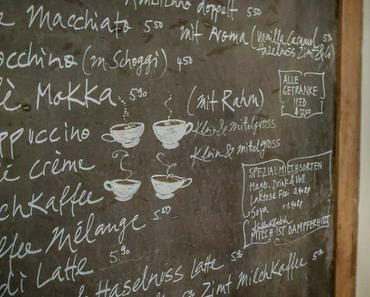 Americano doppelt 5⁵⁰
Macchiato 5⁵⁰
mit Aroma (Vanilla Caramel
Haselnuss Zimt
occhino (m. Schoggi) 4⁵⁰
é Mokka 5⁹⁰
(mit Rahm)
ALLE
GETRÄNKE
ICED
ppuccino
Klein & mittelgross
é crème
Klein & mittelgross
chkaffee
SPEZIALMILCHSORTEN
Mager, Drink & Voll
Laktose Frei
Soja
MILCH IST DAMPFERHITZT
ffee Mélange 5⁵⁰
di Latte 5.⁹⁰
Haselnuss Latte 5⁹⁰
Zimt Milchkaffee 5⁹⁰